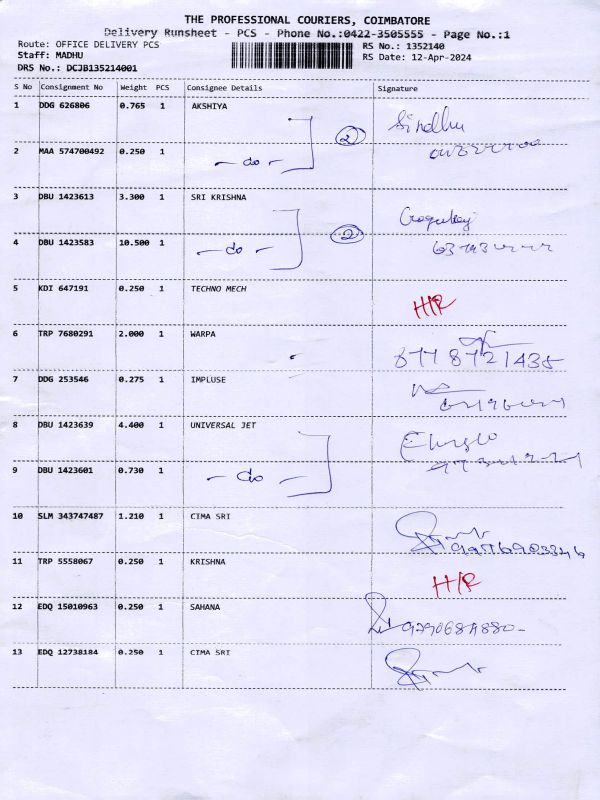 THE PROFESSIONAL COURIERS, COIMBATORE
Delivery Runsheet - PCS - Phone No.:0422-3505555 - Page No.:1
Route: OFFICE DELIVERY PCS RS No.: 1352140
Staff: MADHU RS Date: 12-Apr-2024
DRS No.: DCJB135214001
S No Consignment No Weight PCS Consignee Details Signature
1 DDG 626806 0.765 1 AKSHIYA Sindhu
2
2 MAA 574700492 0.250 1 - do -
3 DBU 1423613 3.300 1 SRI KRISHNA
2
4 DBU 1423583 10.500 1 - do -
5 KDI 647191 0.250 1 TECHNO MECH H/R
6 TRP 7680291 2.000 1 WARPA 8778721435
7 DDG 253546 0.275 1 IMPLUSE
8 DBU 1423639 4.400 1 UNIVERSAL JET
9 DBU 1423601 0.730 1 - do -
10 SLM 343747487 1.210 1 CIMA SRI
11 TRP 5558067 0.250 1 KRISHNA H/R
12 EDQ 15010963 0.250 1 SAHANA
13 EDQ 12738184 0.250 1 CIMA SRI